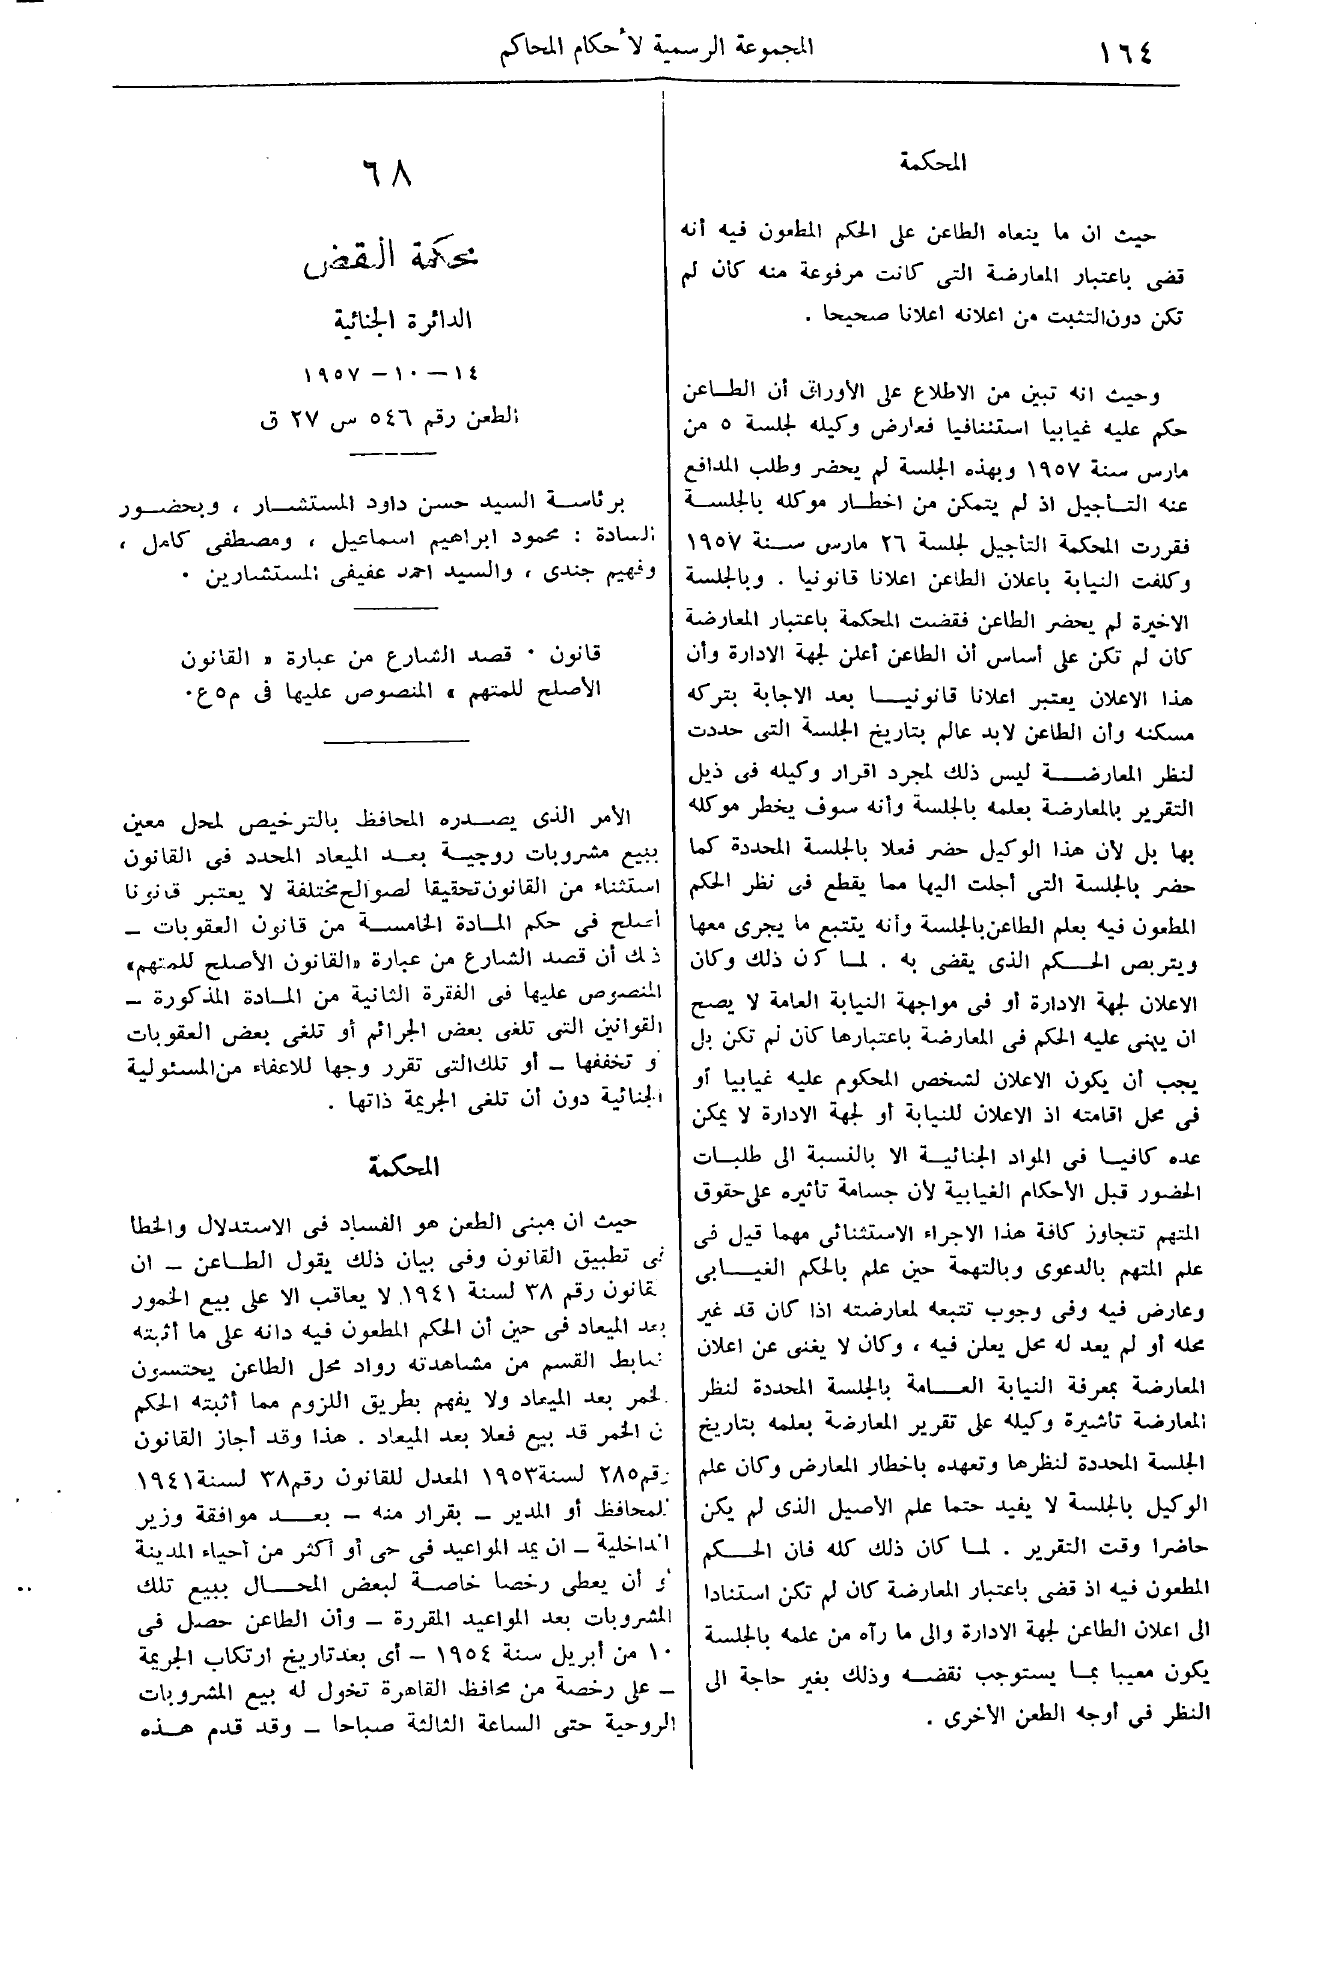 ١٦٤
المجموعة الرسمية لأحكام المحاكم
المحكمة
حيث ان ما ينعاه الطاعن على الحكم المطعون فيه أنه
قضى باعتبار المعارضة التى كانت مرفوعة منه كأن لم
تكن دون التثبت من اعلانه اعلانا صحيحا .
وحيث انه تبين من الاطلاع على الأوراق أن الطاعن
حكم عليه غيابيا استئنافيا فعارض وكيله لجلسة ٥ من
مارس سنة ١٩٥٧ وبهذه الجلسة لم يحضر وطلب المدافع
عنه التأجيل اذ لم يتمكن من اخطار موكله بالجلسة
فقررت المحكمة التأجيل لجلسة ٢٦ مارس سنة ١٩٥٧
وكلفت النيابة باعلان الطاعن اعلانا قانونيا . وبالجلسة
الاخيرة لم يحضر الطاعن فقضت المحكمة باعتبار المعارضة
كان لم تكن على أساس أن الطاعن أعلن لجهة الادارة وأن
هذا الاعلان يعتبر اعلانا قانونيا بعد الاجابة بتركه
مسكنه وأن الطاعن لابد عالم بتاريخ الجلسة التى حددت
لنظر المعارضة ليس ذلك لمجرد اقرار وكيله فى ذيل
التقرير بالمعارضة بعلمه بالجلسة وأنه سوف يخطر موكله
بها بل لأن هذا الوكيل حضر فعلا بالجلسة المحددة كما
حضر بالجلسة التى أجلت اليها مما يقطع فى نظر الحكم
المطعون فيه بعلم الطاعن بالجلسة وأنه يتتبع ما يجرى معها
ويتربص الحكم الذى يقضى به . لما كان ذلك وكان
الاعلان لجهة الادارة أو فى مواجهة النيابة العامة لا يصح
ان يبنى عليه الحكم فى المعارضة باعتبارها كأن لم تكن بل
يجب أن يكون الاعلان لشخص المحكوم عليه غيابيا أو
فى محل اقامته اذ الاعلان للنيابة أو لجهة الادارة لا يمكن
عده كافيا فى المواد الجنائية الا بالنسبة الى طلبات
الحضور قبل الأحكام الغيابية لأن جسامة تأثيره على حقوق
المتهم تتجاوز كافة هذا الاجراء الاستثنائى مهما قيل فى
علم المتهم بالدعوى وبالتهمة حين علم بالحكم الغيابى
وعارض فيه وفى وجوب تتبعه لمعارضته اذا كان قد غير
محله أو لم يعد له محل يعلن فيه ، وكان لا يغنى عن اعلان
المعارضة بمعرفة النيابة العامة بالجلسة المحددة لنظر
المعارضة تأشيرة وكيله على تقرير المعارضة بعلمه بتاريخ
الجلسة المحددة لنظرها وتعهده باخطار المعارض وكان علم
الوكيل بالجلسة لا يفيد حتما علم الأصيل الذى لم يكن
حاضرا وقت التقرير . لما كان ذلك كله فان الحكم
المطعون فيه اذ قضى باعتبار المعارضة كان لم تكن استنادا
الى اعلان الطاعن لجهة الادارة والى ما رآه من علمه بالجلسة
يكون معيبا بما يستوجب نقضه وذلك بغير حاجة الى
النظر فى أوجه الطعن الأخرى .
٦٨
محكمة النقض
الدائرة الجنائية
١٤ – ١٠ – ١٩٥٧
الطعن رقم ٥٤٦ س ٢٧ ق
برئاسة السيد حسن داود المستشار ، وبحضور
السادة : محمود ابراهيم اسماعيل ، ومصطفى كامل ،
وفهيم جندى ، والسيد احمد عفيفى المستشارين .
قانون . قصد الشارع من عبارة « القانون
الأصلح للمتهم » المنصوص عليها فى م٥ع.
الأمر الذى يصدره المحافظ بالترخيص لمحل معين
ببيع مشروبات روحية بعد الميعاد المحدد فى القانون
استثناء من القانون تحقيقا لصوالح مختلفة لا يعتبر قانونا
أصلح فى حكم المادة الخامسة من قانون العقوبات –
ذلك أن قصد الشارع من عبارة «القانون الأصلح للمتهم»
المنصوص عليها فى الفقرة الثانية من المادة المذكورة –
القوانين التى تلغى بعض الجرائم أو تلغى بعض العقوبات
أو تخففها – أو تلك التى تقرر وجها للاعفاء من المسئولية
الجنائية دون أن تلغى الجريمة ذاتها .
المحكمة
حيث ان مبنى الطعن هو الفساد فى الاستدلال والخطأ
فى تطبيق القانون وفى بيان ذلك يقول الطاعن – ان
القانون رقم ٣٨ لسنة ١٩٤١ لا يعاقب الا على بيع الخمور
بعد الميعاد فى حين أن الحكم المطعون فيه دانه على ما أثبته
ضابط القسم من مشاهدته رواد محل الطاعن يحتسون
الخمر بعد الميعاد ولا يفهم بطريق اللزوم مما أثبته الحكم
أن الخمر قد بيع فعلا بعد الميعاد . هذا وقد أجاز القانون
رقم ٢٨٥ لسنة ١٩٥٣ المعدل للقانون رقم ٣٨ لسنة ١٩٤١
للمحافظ أو المدير – بقرار منه – بعد موافقة وزير
الداخلية – ان يمد المواعيد فى حى أو أكثر من أحياء المدينة
أو أن يعطى رخصا خاصة لبعض المحال ببيع تلك
المشروبات بعد المواعيد المقررة – وأن الطاعن حصل فى
١٠ من أبريل سنة ١٩٥٤ – أى بعد تاريخ ارتكاب الجريمة
– على رخصة من محافظ القاهرة تخول له بيع المشروبات
الروحية حتى الساعة الثالثة صباحا – وقد قدم هذه